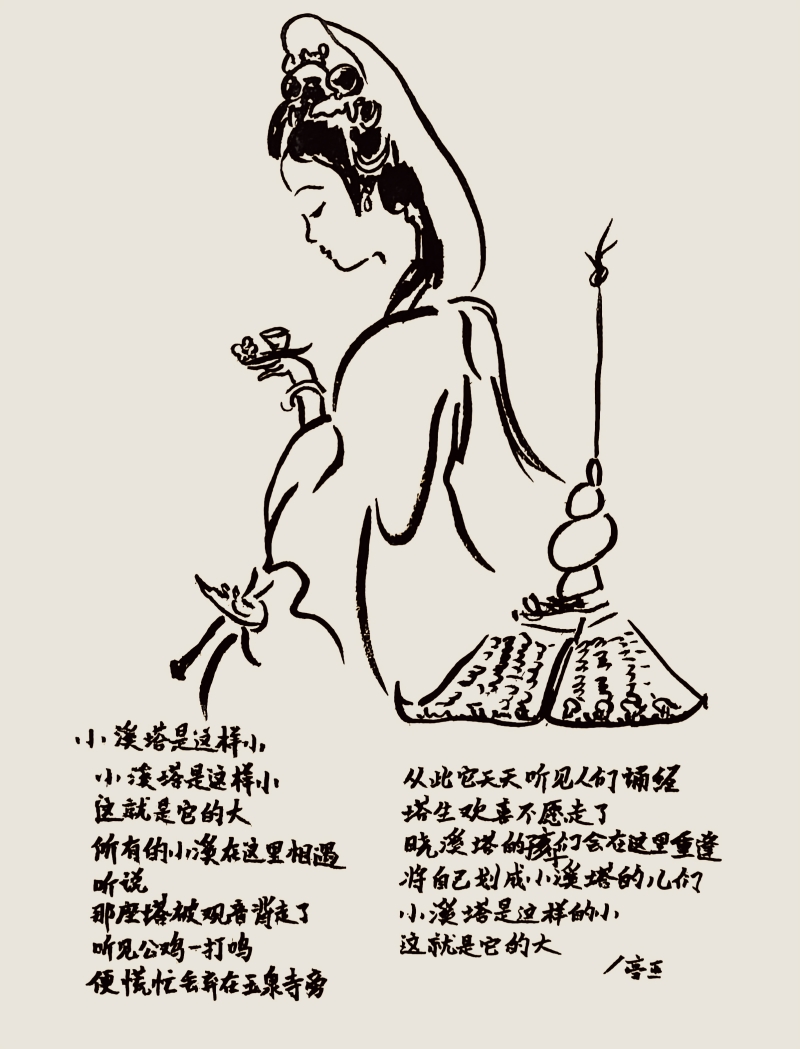 小溪塔是这样小
小溪塔是这样小
这就是它的大
所有的小溪在这里相遇
听说
那座塔被观音背走了
听见公鸡一打鸣
便慌忙丢弃在玉泉寺旁
从此它天天听见人们诵经
塔生欢喜不愿走了
晓溪塔的孩们会在这里重逢
将自己划成小溪塔的儿们
小溪塔是这样的小
这就是它的大
/亭